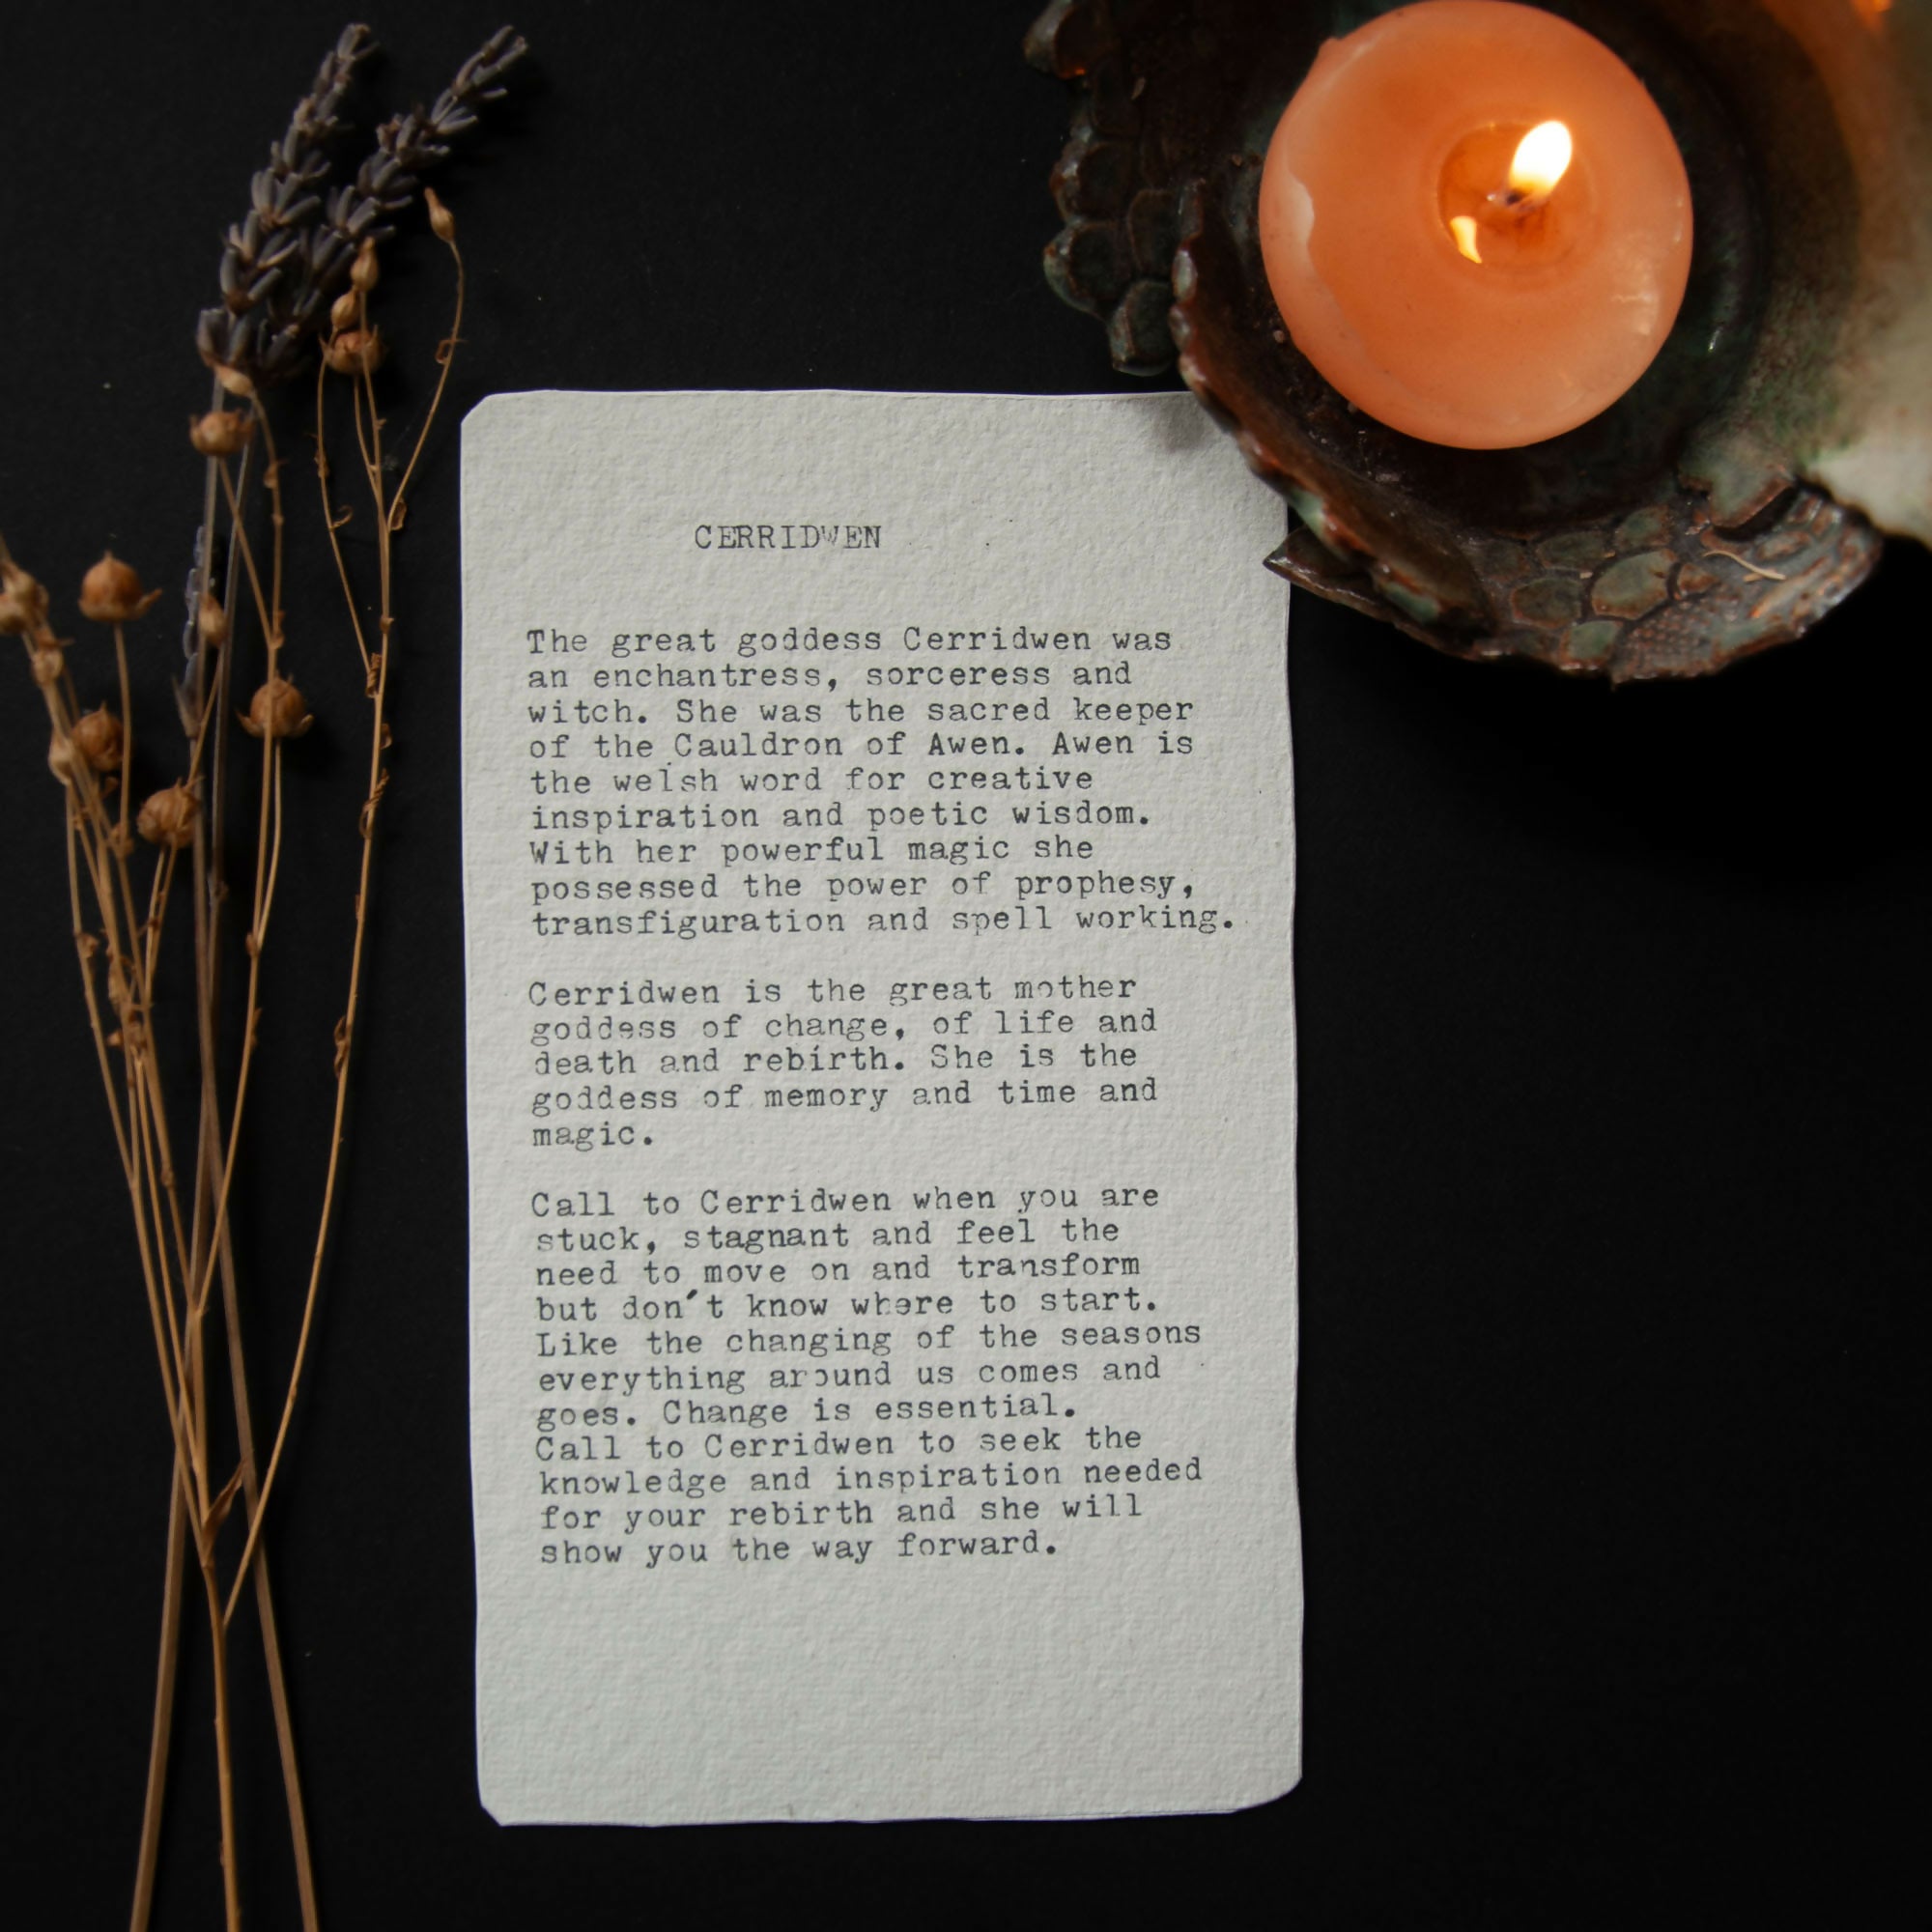 CERRIDWEN
The great goddess Cerridwen was
an enchantress, sorceress and
witch. She was the sacred keeper
of the Cauldron of Awen. Awen is
the welsh word for creative
inspiration and poetic wisdom.
With her powerful magic she
possessed the power of prophesy,
transfiguration and spell working.
Cerridwen is the great mother
goddess of change, of life and
death and rebirth. She is the
goddess of memory and time and
magic.
Call to Cerridwen when you are
stuck, stagnant and feel the
need to move on and transform
but don't know where to start.
Like the changing of the seasons
everything around us comes and
goes. Change is essential.
Call to Cerridwen to seek the
knowledge and inspiration needed
for your rebirth and she will
show you the way forward.